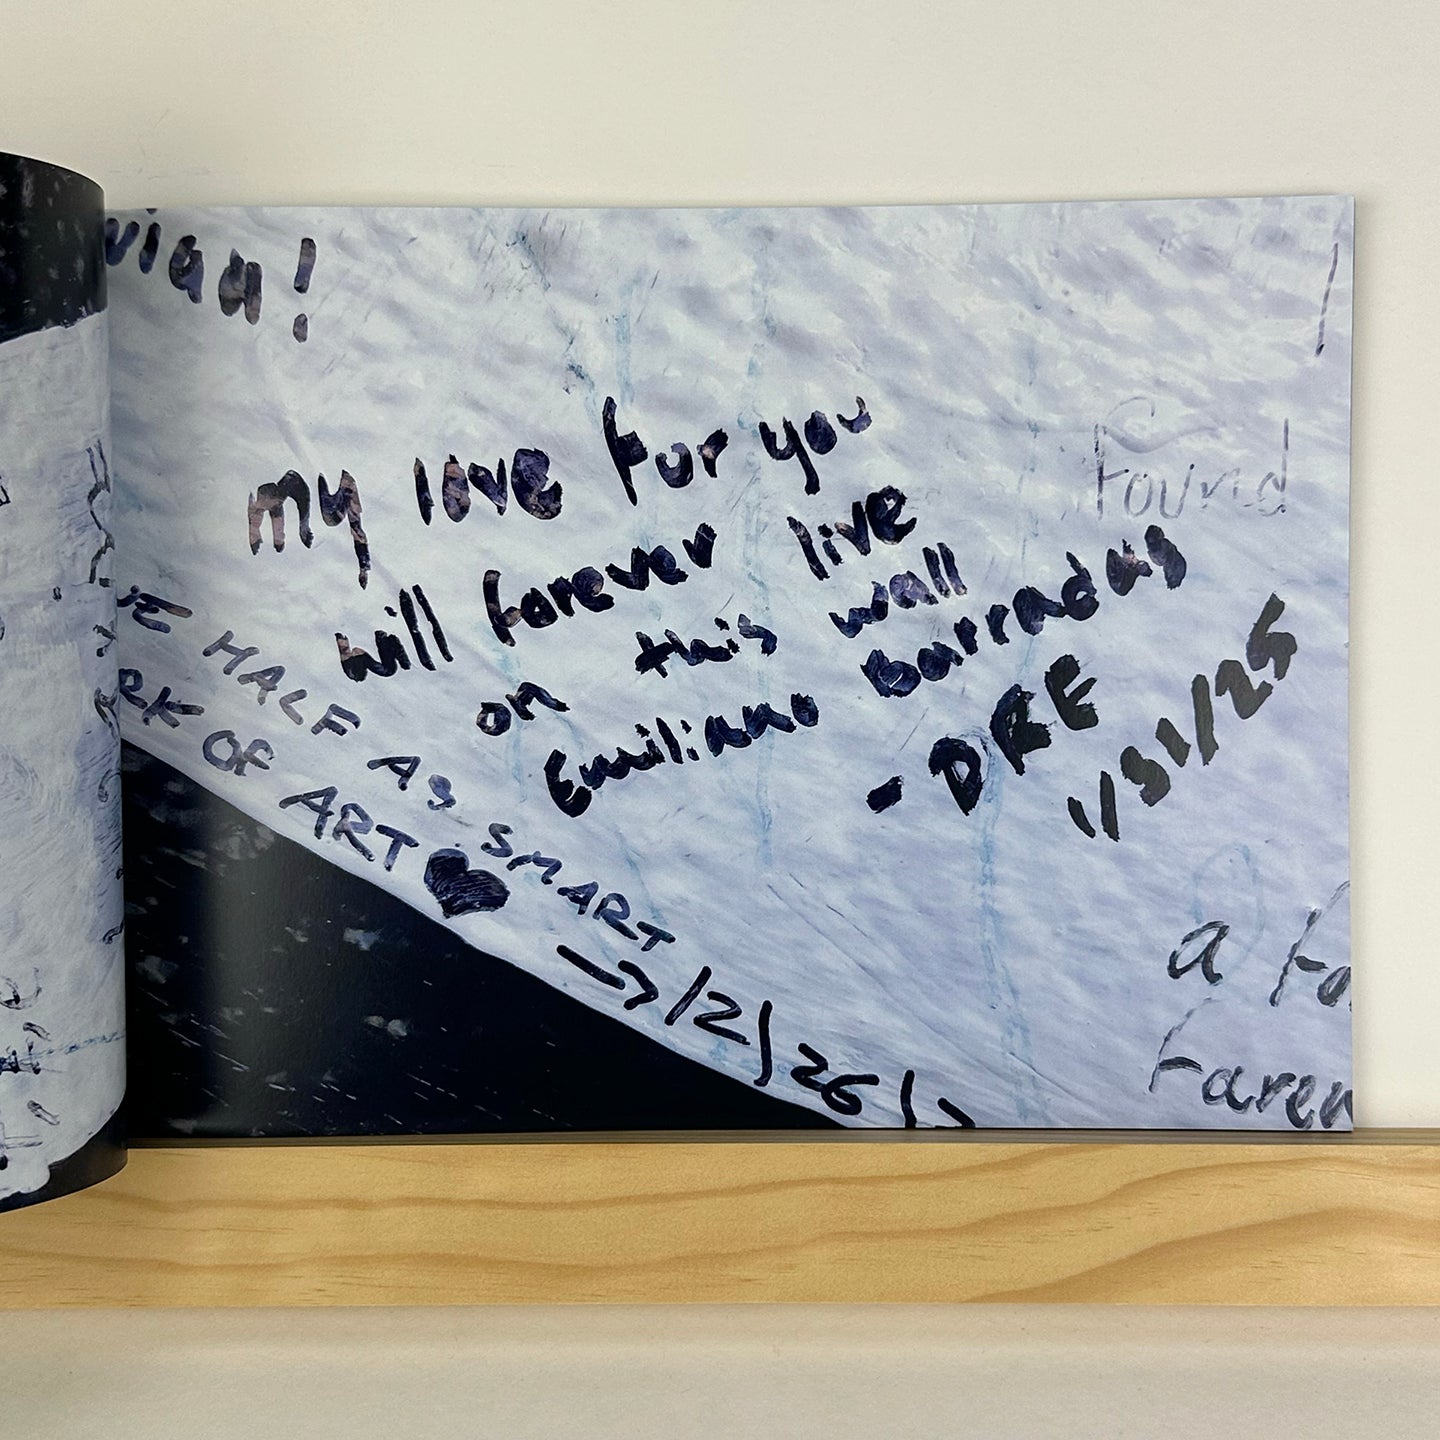 my love for you
will forever live
on this wall
Emiliano Barradas
- DRE
1/31/25
found
HALF AS SMART
OF ART
→ 12/26/
a